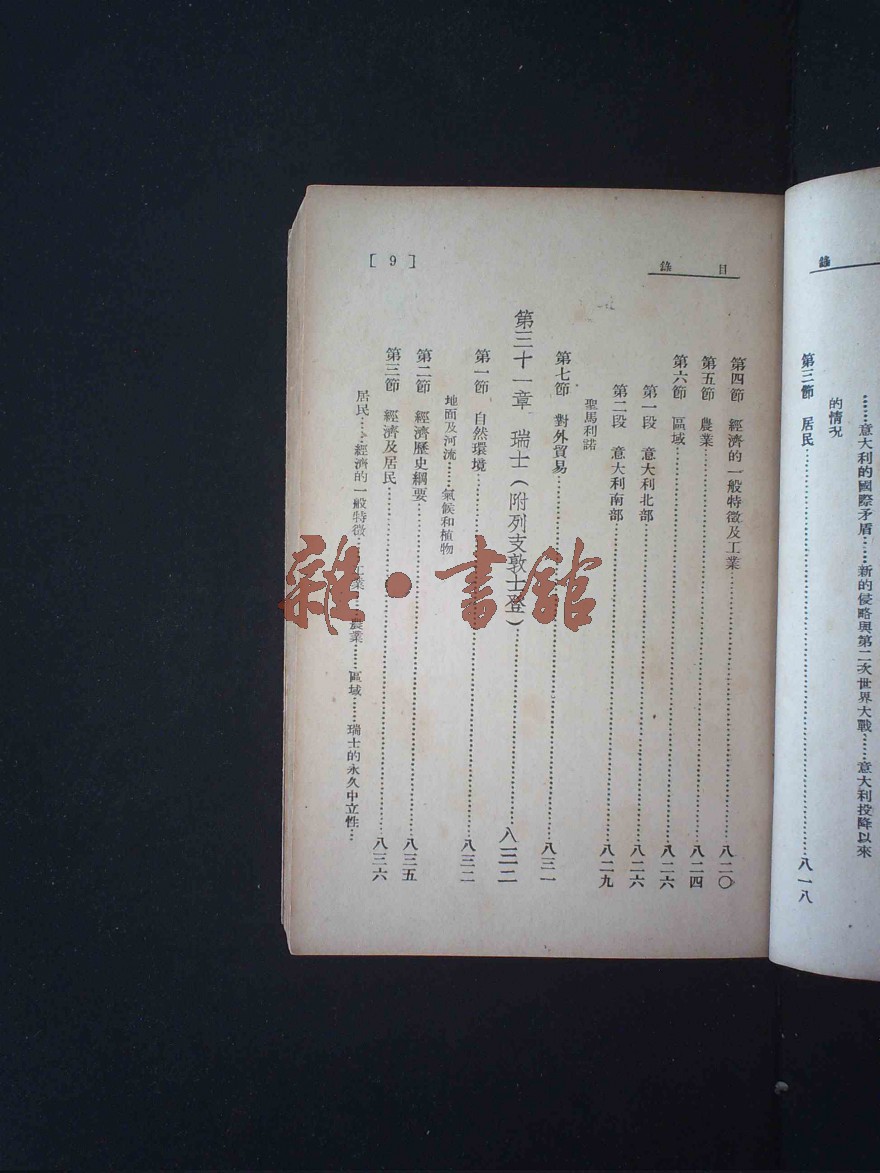 錄
……意大利的國際矛盾……新的侵略與第二次世界大戰……意大利投降以來
的情況
第三節 居民……八一八
目錄
第四節 經濟的一般特徵及工業……八二〇
第五節 農業……八二四
第六節 區域……八二六
第一段 意大利北部……八二六
第二段 意大利南部……八二九
聖馬利諾
第七節 對外貿易……八三一
第三十一章 瑞士(附列支敦士登)……八三二
第一節 自然環境……八三二
地面及河流……氣候和植物
第二節 經濟歷史綱要……八三五
第三節 經濟及居民……八三六
居民……經濟的一般特徵……工業……農業……區域……瑞士的永久中立性…
[9]
雜·書館